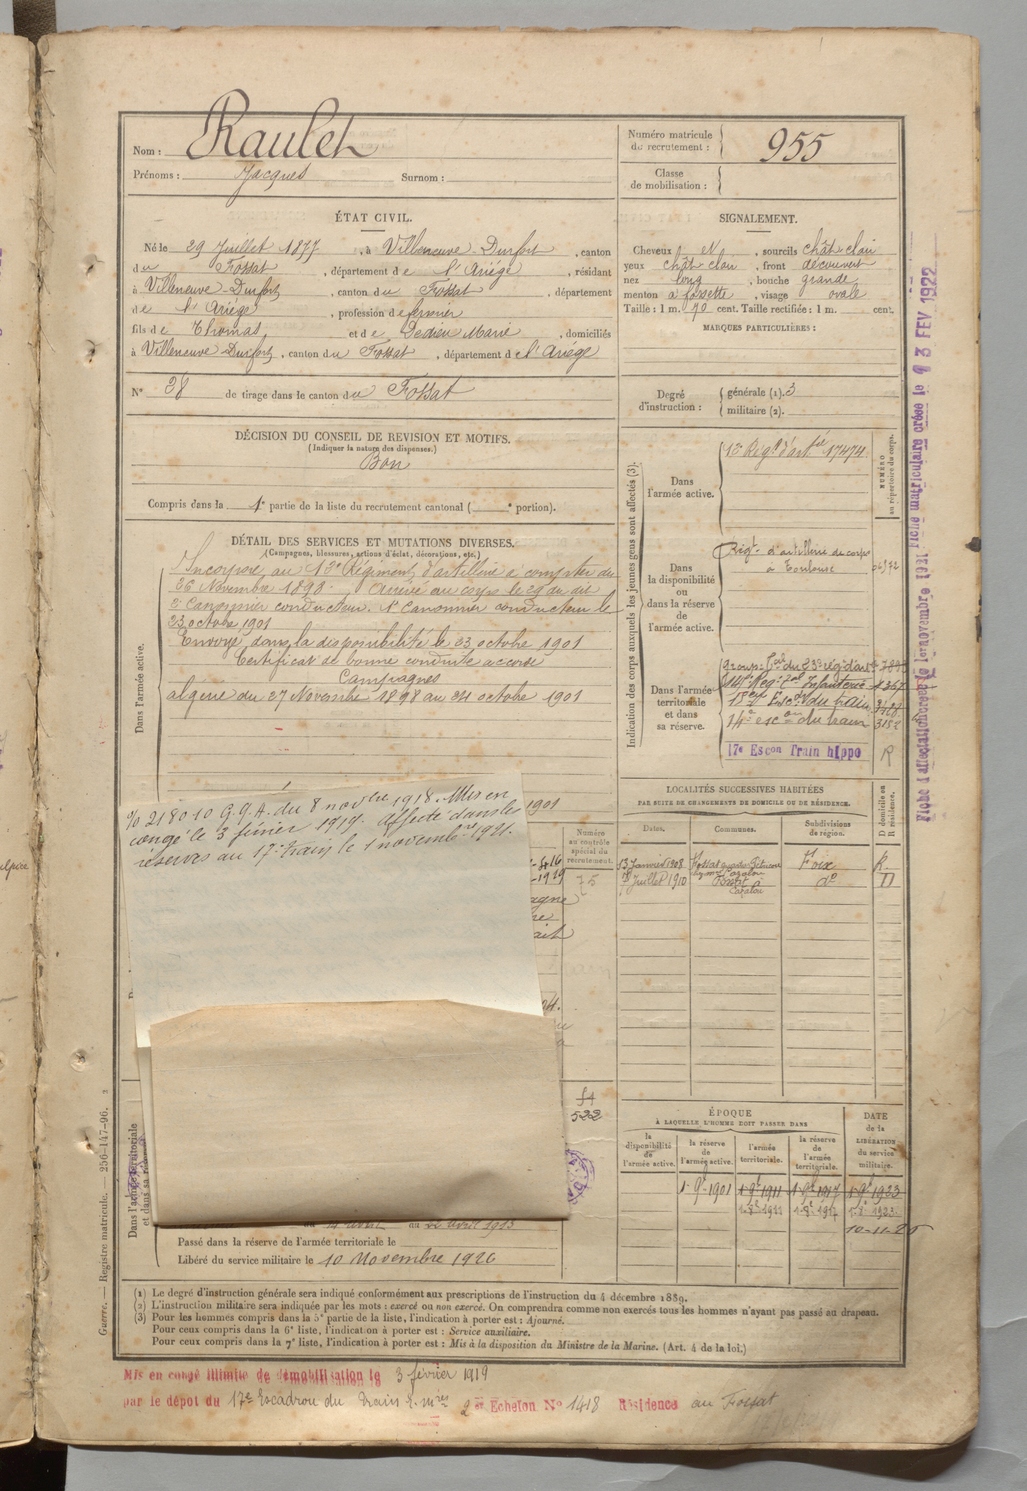 Nom : Raulet
Prénoms : Jacques Surnom :
Numéro matricule de recrutement : 955
Classe de mobilisation :
ÉTAT CIVIL.
Né le 29 Juillet 1877, à Villeneuve-Durfort, canton
du Fossat, département de l'Ariége, résidant
à Villeneuve-Durfort, canton du Fossat, département
de l'Ariége, profession de fermier
fils de Thomas, et de Dedieu Marie, domiciliés
à Villeneuve Durfort, canton du Fossat, département de l'Ariége
N° 28 de tirage dans le canton du Fossat
SIGNALEMENT.
Cheveux N, sourcils chât clair
yeux chât clair, front découvert
nez long, bouche grande
menton à fossette, visage ovale
Taille : 1 m. 70 cent. Taille rectifiée : 1 m. cent.
MARQUES PARTICULIÈRES :
Degré d'instruction : générale (1). 3
militaire (2).
DÉCISION DU CONSEIL DE REVISION ET MOTIFS.
(Indiquer la nature des dispenses.)
Bon
Compris dans la 1e partie de la liste du recrutement cantonal ( e portion).
DÉTAIL DES SERVICES ET MUTATIONS DIVERSES.
(Campagnes, blessures, actions d'éclat, décorations, etc.)
Dans l'armée active.
Incorporé au 13e Régiment d'artillerie à compter du
26 Novembre 1898. Arrivé au corps le 29 du dit
2e Canonnier conducteur. 1er Canonnier conducteur le
23 octobre 1901
Envoyé dans la disponibilité le 23 octobre 1901
Certificat de bonne conduite accordé
Campagnes
Algérie du 27 Novembre 1898 au 24 octobre 1901
1901
% 218010 G.Q.G. du 8 novbre 1918. Mis en
congé le 3 février 1919. Affecté dans les
réserves au 17e train le 1 novembre 1921.
Numéro au contrôle spécial du recrutement.
75
54
522
Dans l'armée territoriale et dans sa réserve
au 22 avril 1913
Passé dans la réserve de l'armée territoriale le
Libéré du service militaire le 10 Novembre 1926
Indication des corps auxquels les jeunes gens sont affectés (3).
NUMÉRO au répertoire du corps.
Dans l'armée active.
13e Regt d'artie 17474
Dans la disponibilité ou dans la réserve de l'armée active.
Rigt d'artillerie de corps
à Toulouse
Dans l'armée territoriale et dans sa réserve.
Groupe Tal du 23e régt d'art
Regt Tal Infanterie 1367
17e Escon du train
14e escon du train 3152
17e Escon Train hippo R
LOCALITÉS SUCCESSIVES HABITÉES
PAR SUITE DE CHANGEMENTS DE DOMICILE OU DE RÉSIDENCE.
Dates. Communes. Subdivisions de région. D domicile ou R résidence.
13 Janvier 1908 Fossat Foix R.
Juillet 1910 Fossat à Cazalou do D
ÉPOQUE
À LAQUELLE L'HOMME DOIT PASSER DANS
la disponibilité de l'armée active. la réserve de l'armée active. l'armée territoriale. la réserve de l'armée territoriale. DATE de la LIBÉRATION du service militaire.
1-9e-1901 1-9e-1911 1-9e-1917 1-9e-1923
10-11-26
(1) Le degré d'instruction générale sera indiqué conformément aux prescriptions de l'instruction du 4 décembre 1889.
(2) L'instruction militaire sera indiquée par les mots : exercé ou non exercé. On comprendra comme non exercés tous les hommes n'ayant pas passé au drapeau.
(3) Pour les hommes compris dans la 5e partie de la liste, l'indication à porter est : Ajourné.
Pour ceux compris dans la 6e liste, l'indication à porter est : Service auxiliaire.
Pour ceux compris dans la 7e liste, l'indication à porter est : Mis à la disposition du Ministre de la Marine. (Art. 4 de la loi.)
Mis en congé illimité de démobilisation le 3 février 1919
par le dépôt du 17e Escadron du Train 2e Echelon N° 1418 Résidence au Fossat
Guerre. — Registre matricule. — 256-147-96.
Fiche d'affectation créée le 1er novembre 1921 Fiche matriculaire créée le 3 FEV 1922